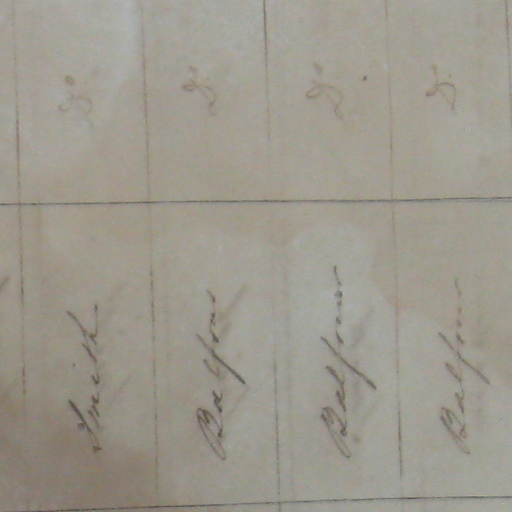 Smith Do
Balfour Do
Balfour Do
Balfour Do